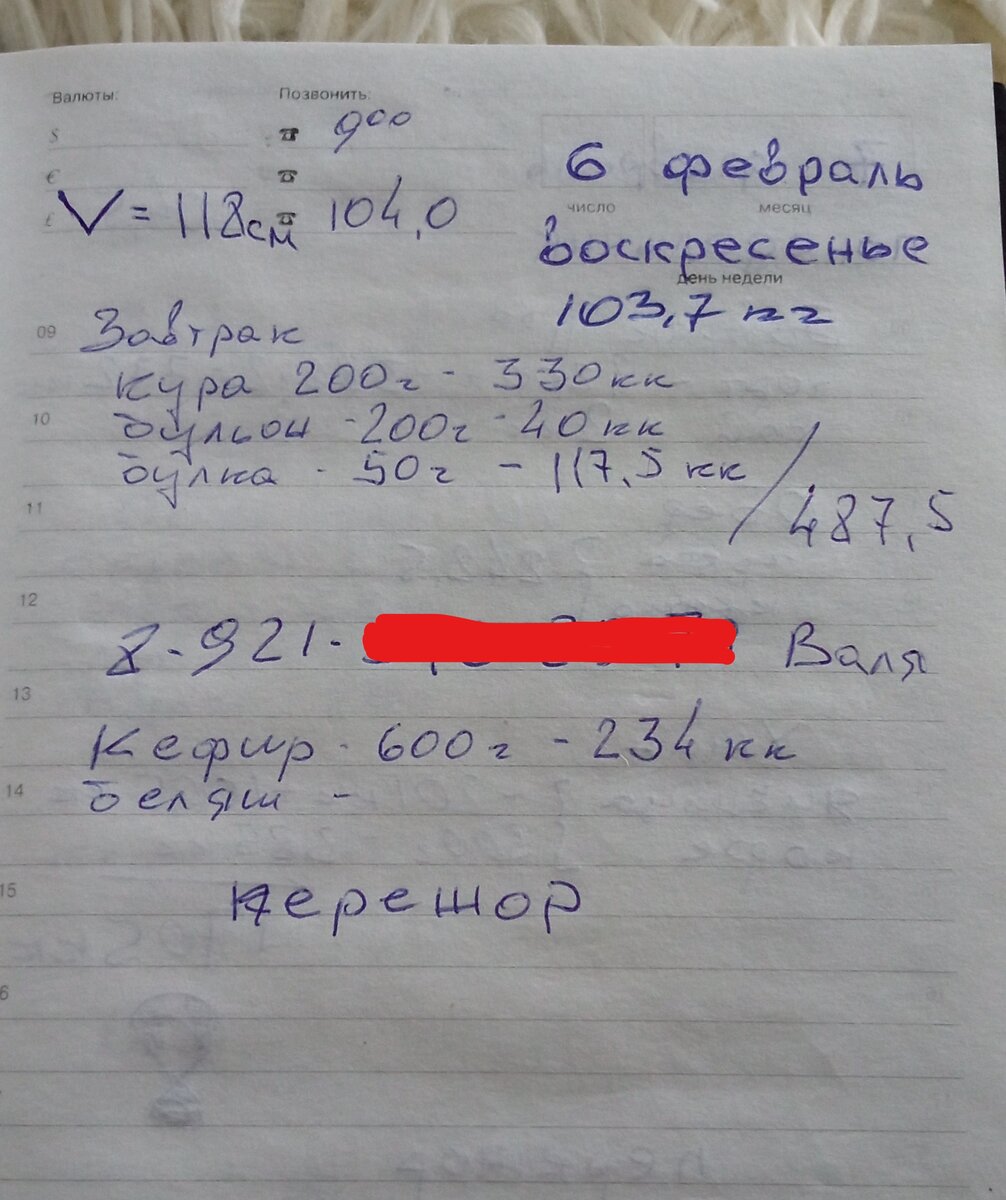 Валюты: Позвонить:
$ ☎ 9⁰⁰
€ ☎
6 февраль
число месяц
£ V = 118см ☎ 104,0
воскресенье
день недели
103,7 кг
09 Завтрак
кура 200г - 330кк
10 бульон - 200г - 40 кк
булка - 50г - 117,5 кк
11 / 487,5
12
8-921- Валя
13
Кефир - 600г - 234 кк
14 беляш -
15
6